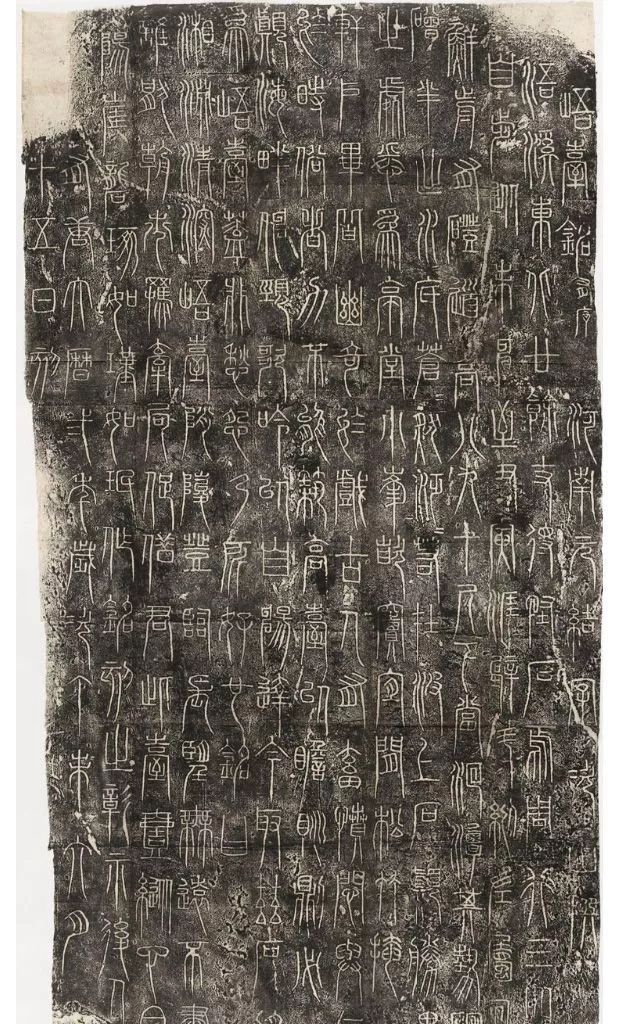 峿臺銘有序 河南元結字次山撰
浯溪東北廿餘丈得怪石焉周行三四
百步從未申至丑寅涯壁斗絕左屬回
鮮前有磴道高八九十尺下當洄潭其勢碅
磳半出水底蒼然泛若在波上石巔勝異
之處悉為亭堂小峯嵌竇宜間松竹掩映
軒戶畢皆幽奇於戲古人有畜憤悶與病
於時俗者力不能築高臺以瞻眺則必山
顛海畔伸頸歌吟以自暢達今取茲石將
為峿臺蓋非愁怨乃所好也銘曰
湘淵清深峿臺陗峻登臨長望無遠不盡
誰厭朝市羈牽局促借君此臺壹縱心目
陽崖礱琢如瑾如珉作銘刻之彰示後人
有唐大曆二年歲次丁未六月
十五日刻